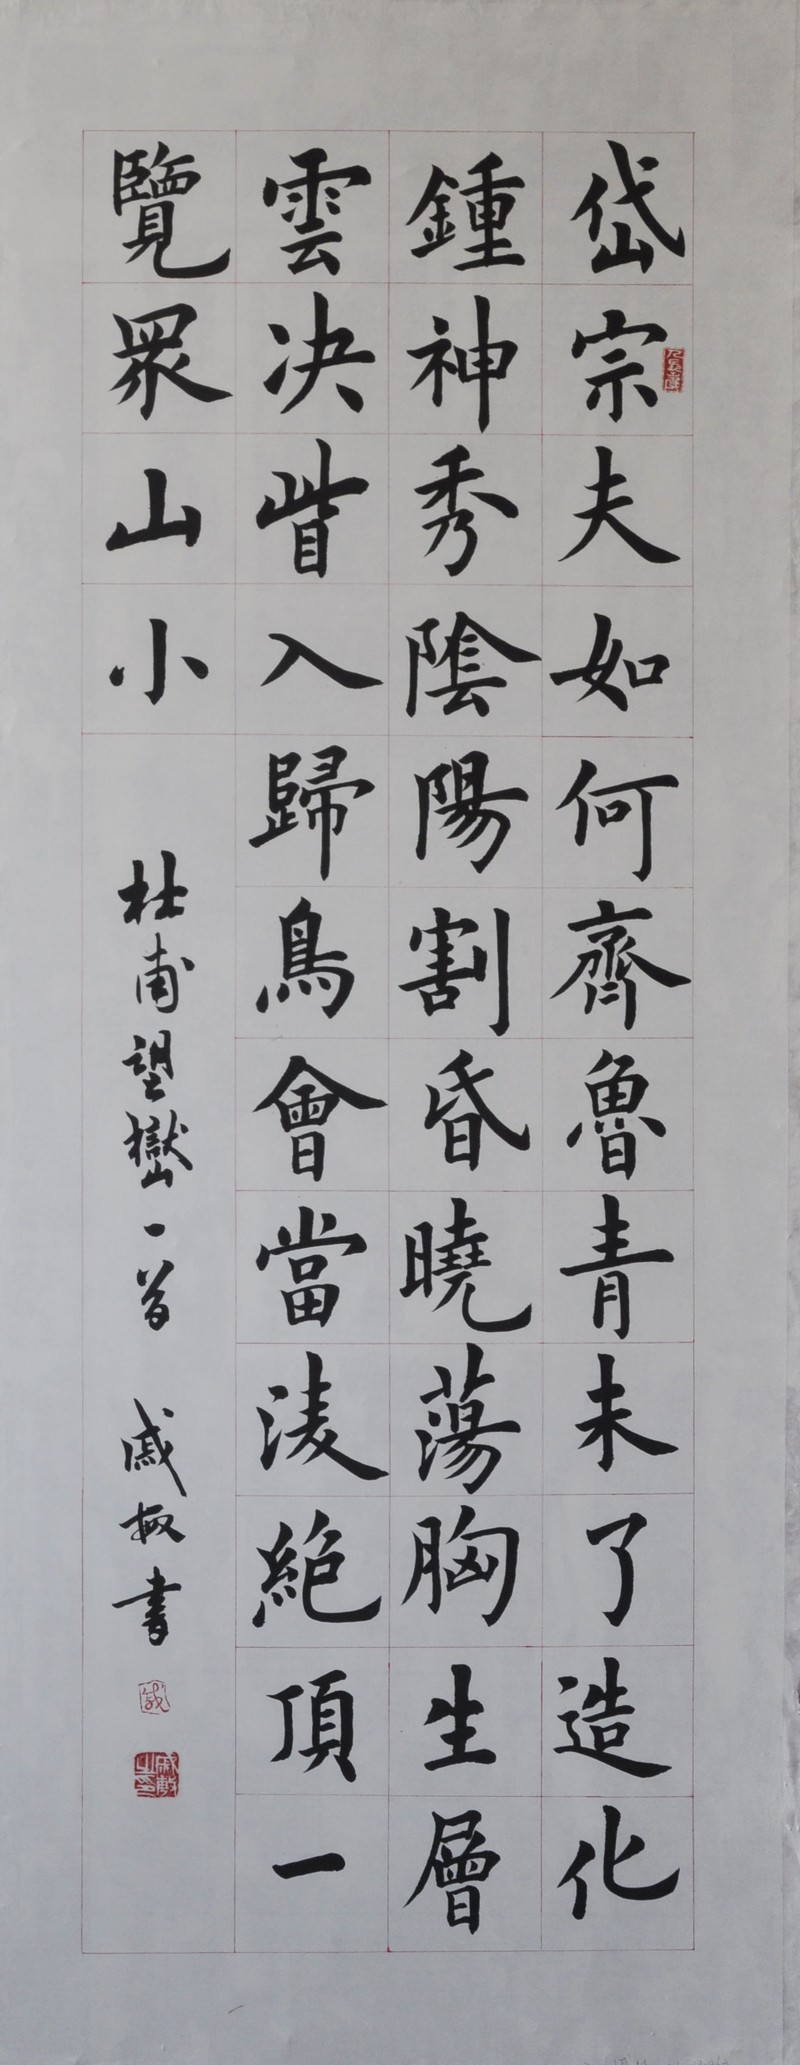 岱宗夫如何齊魯青未了造化
鍾神秀陰陽割昏曉蕩胸生層
雲決眥入歸鳥會當淩絕頂一
覽眾山小
杜甫望嶽一首 戚
書